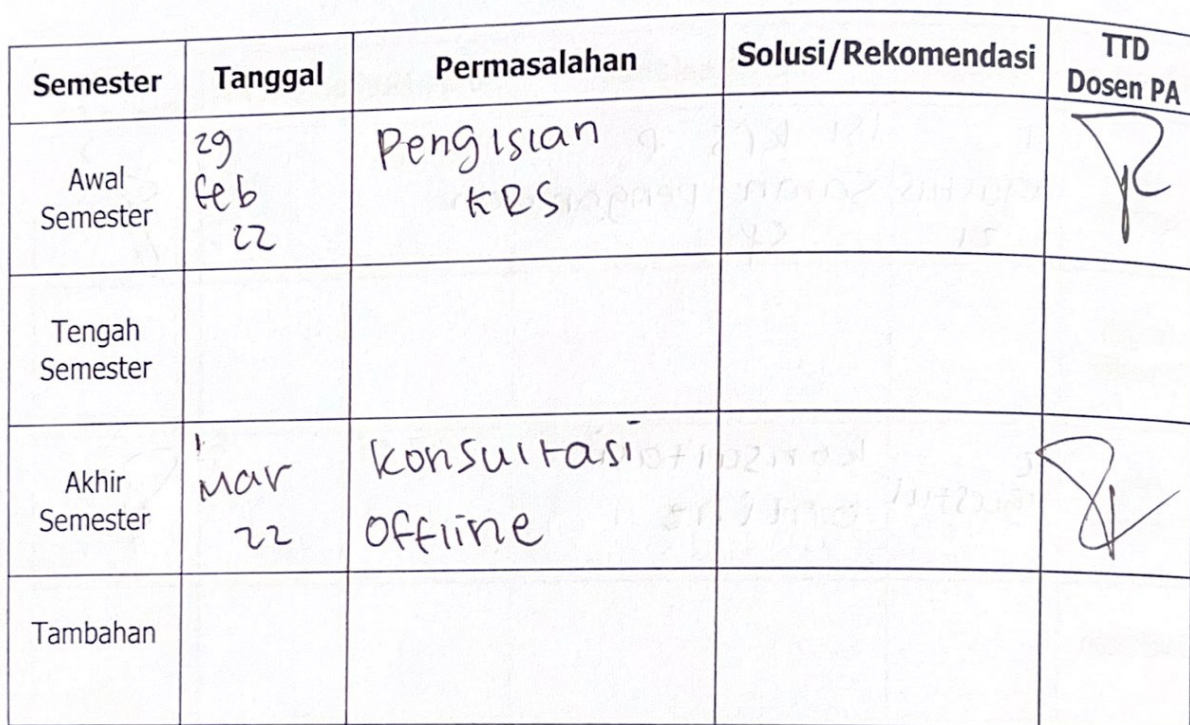 Semester Tanggal Permasalahan Solusi/Rekomendasi TTD
Dosen PA
Awal
Semester
29
feb
22
Pengisian
KRS
Tengah
Semester
Akhir
Semester
1
Mar
22
Konsultasi
Offline
Tambahan